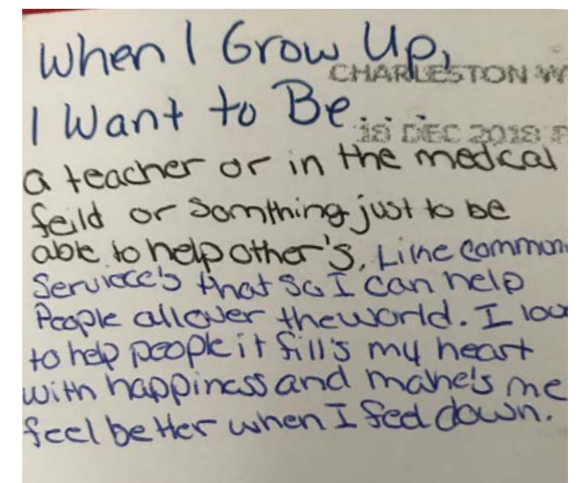 When I Grow Up,
CHARLESTON W
I Want to Be...
18 DEC 2018 P
a teacher or in the medcal
feild or somthing just to be
able to help other's. Like common
Serviece's that so I can help
People all over the world. I lov
to help people it fill's my heart
with happiness and make's me
feel better when I feel down.